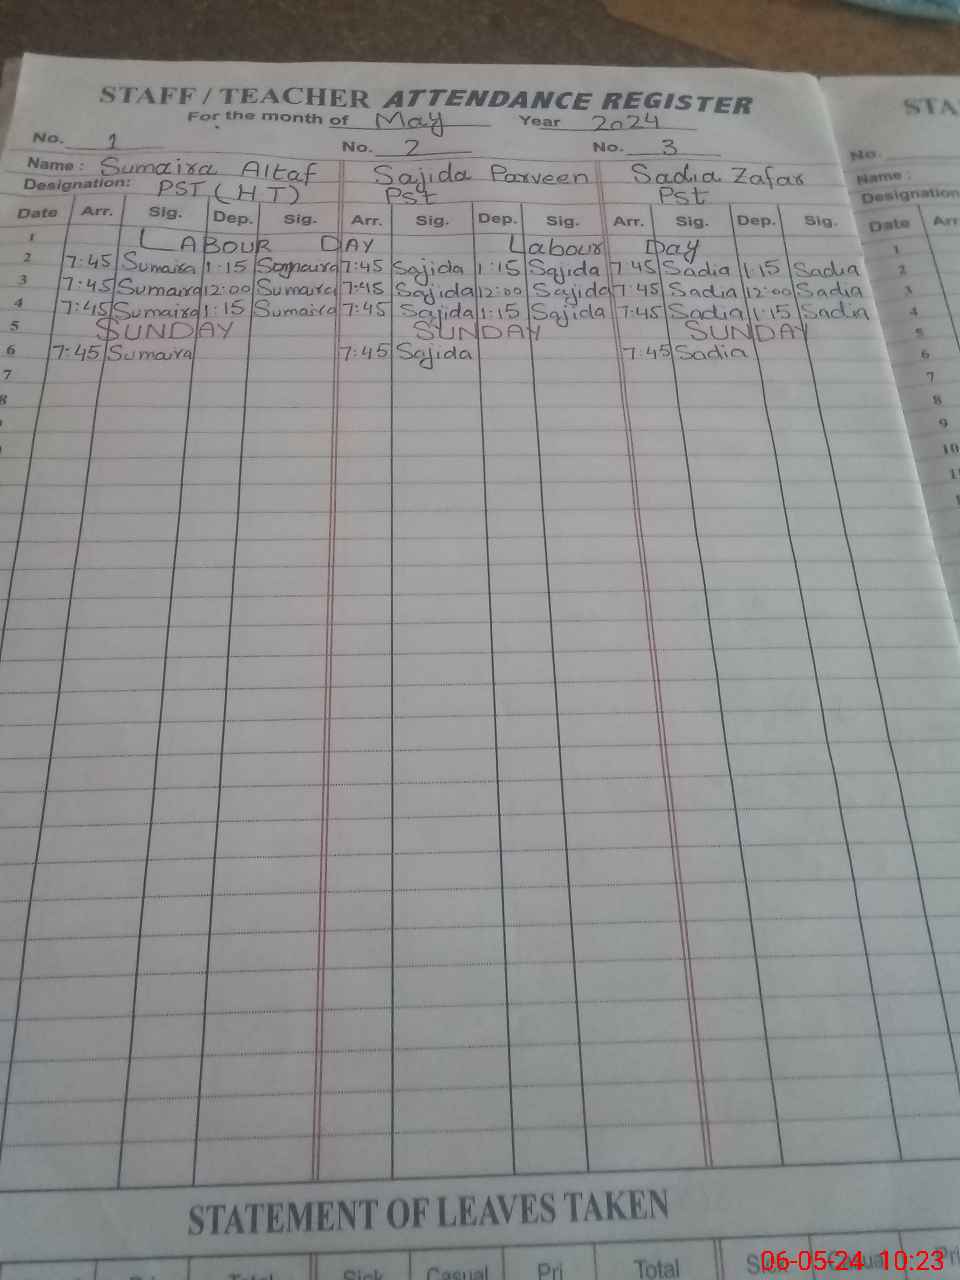 STAFF / TEACHER ATTENDANCE REGISTER
For the month of May Year 2024
No. 1 No. 2 No. 3
Name : Sumaira Altaf Sajida Parveen Sadia Zafar
Designation: PST (HT) Pst Pst
Date Arr. Sig. Dep. Sig. Arr. Sig. Dep. Sig. Arr. Sig. Dep. Sig.
1 LABOUR DAY Labour Day
2 7:45 Sumaira 1:15 Sumaira 7:45 Sajida 1:15 Sajida 7:45 Sadia 1:15 Sadia
3 7:45 Sumaira 12:00 Sumaira 7:45 Sajida 12:00 Sajida 7:45 Sadia 12:00 Sadia
4 7:45 Sumaira 1:15 Sumaira 7:45 Sajida 1:15 Sajida 7:45 Sadia 1:15 Sadia
5 SUNDAY SUNDAY SUNDAY
6 7:45 Sumaira 7:45 Sajida 7:45 Sadia
7
8
STATEMENT OF LEAVES TAKEN
Total Sick Casual Pri Total Sick Casual Pri
STA
No.
Name :
Designation
Date Arr
1
2
3
4
5
6
7
8
9
10
06-05-24 10:23